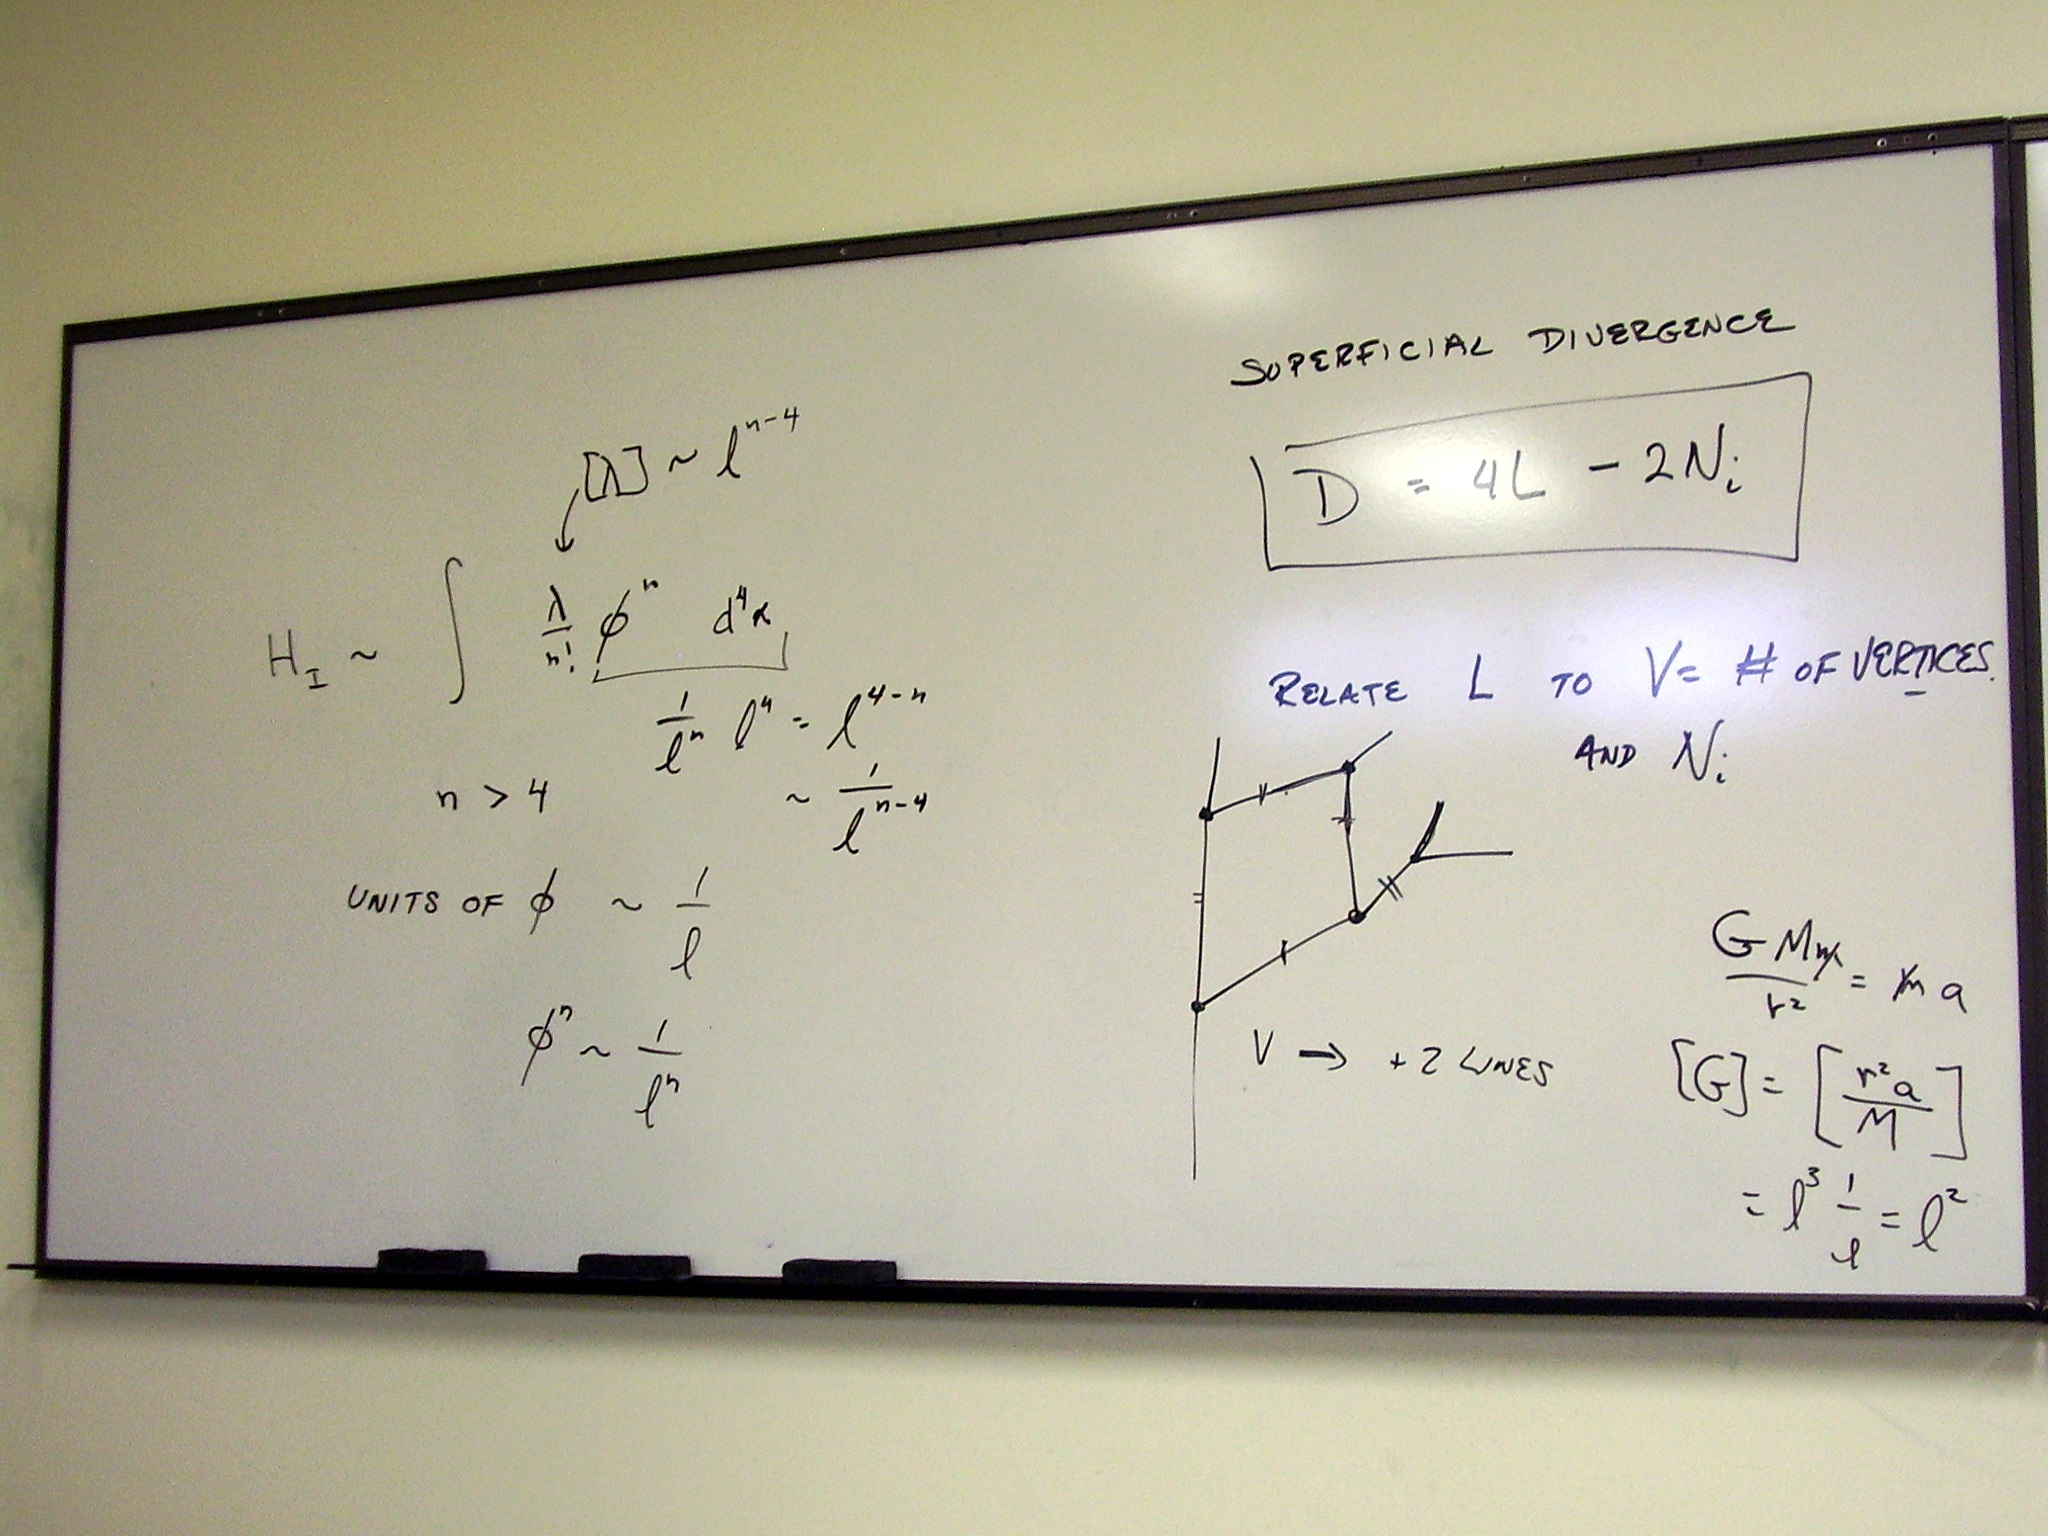 [λ] ~ l^{n-4}
H_I ~ ∫ λ/n! φ^n d^4x
1/l^n l^4 = l^{4-n}
n > 4 ~ 1/l^{n-4}
UNITS OF φ ~ 1/l
φ^n ~ 1/l^n
SUPERFICIAL DIVERGENCE
D = 4L - 2N_i
RELATE L TO V = # OF VERTICES.
AND N_i
V → +2 LINES
GMm/r^2 = ma
[G] = [r^2 a/M]
= l^3 1/l = l^2